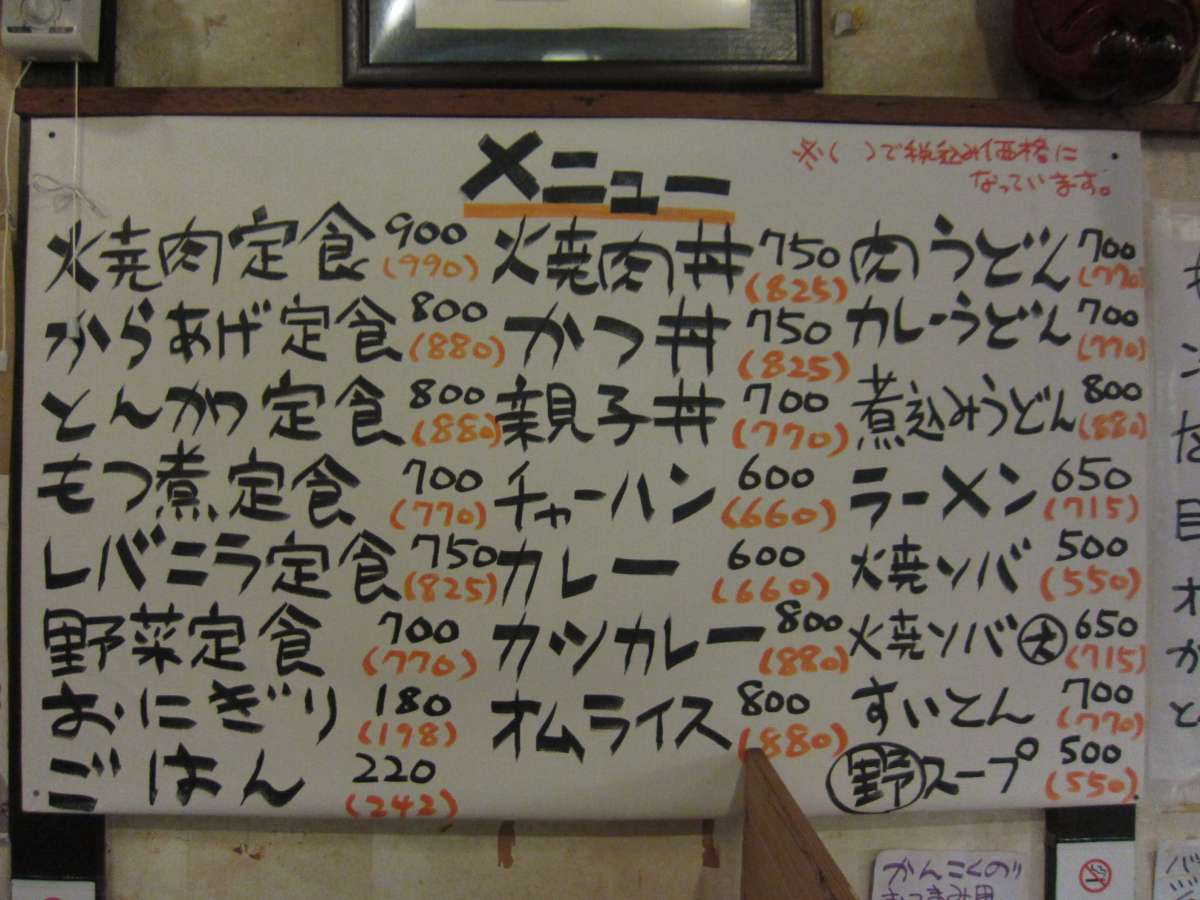 メニュー
※( )で税込み価格に
なっています。
焼肉定食 900
(990)
からあげ定食 800
(880)
とんかつ定食 800
(880)
もつ煮定食 700
(770)
レバニラ定食 750
(825)
野菜定食 700
(770)
おにぎり 180
(198)
ごはん 220
(242)
焼肉丼 750
(825)
かつ丼 750
(825)
親子丼 700
(770)
チャーハン 600
(660)
カレー 600
(660)
カツカレー 800
(880)
オムライス 800
(880)
肉うどん 700
(770)
カレーうどん 700
(770)
煮込みうどん 800
(880)
ラーメン 650
(715)
焼ソバ 500
(550)
焼ソバ大 650
(715)
すいとん 700
(770)
野スープ 500
(550)
かんこくのり
おつまみ用